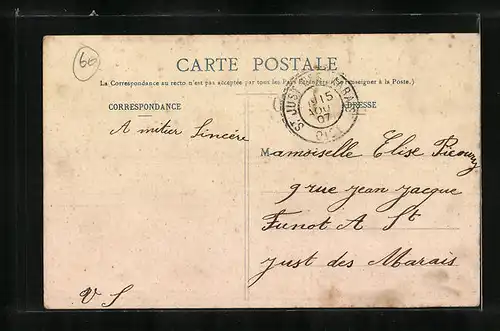 60
CARTE POSTALE
(La Correspondance au recto n'est pas acceptée par tous les Pays Etrangers. Se renseigner à la Poste.)
CORRESPONDANCE
ADRESSE
ST JUST DES MARAIS
15
AOU
07
OISE
A mitier Sincère
Mamoiselle Elise
9 rue jean jacque
Funot A St
just des Marais
V S